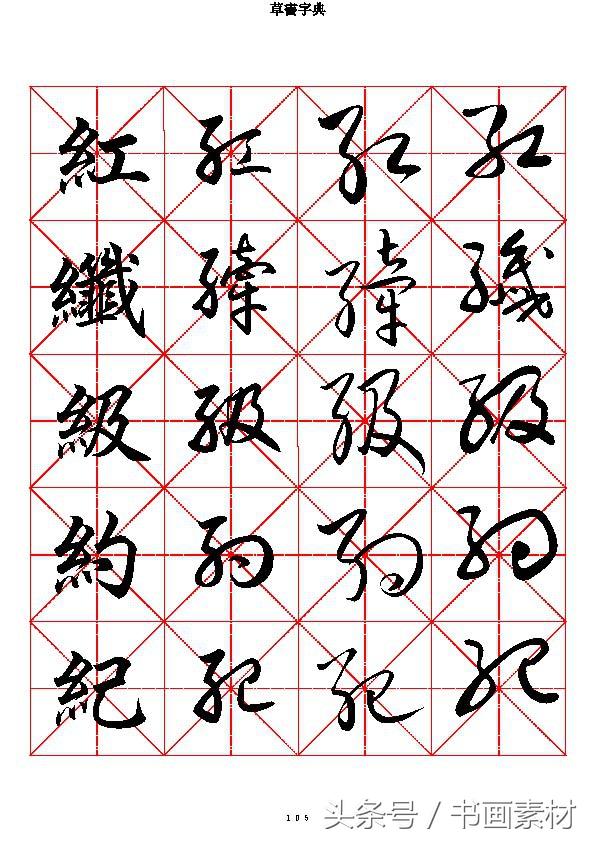 草書字典
紅 紅 紅 紅
纖 縴 縴 纖
級 級 級 級
約 約 約 約
紀 紀 紀 紀
105
头条号 / 书画素材